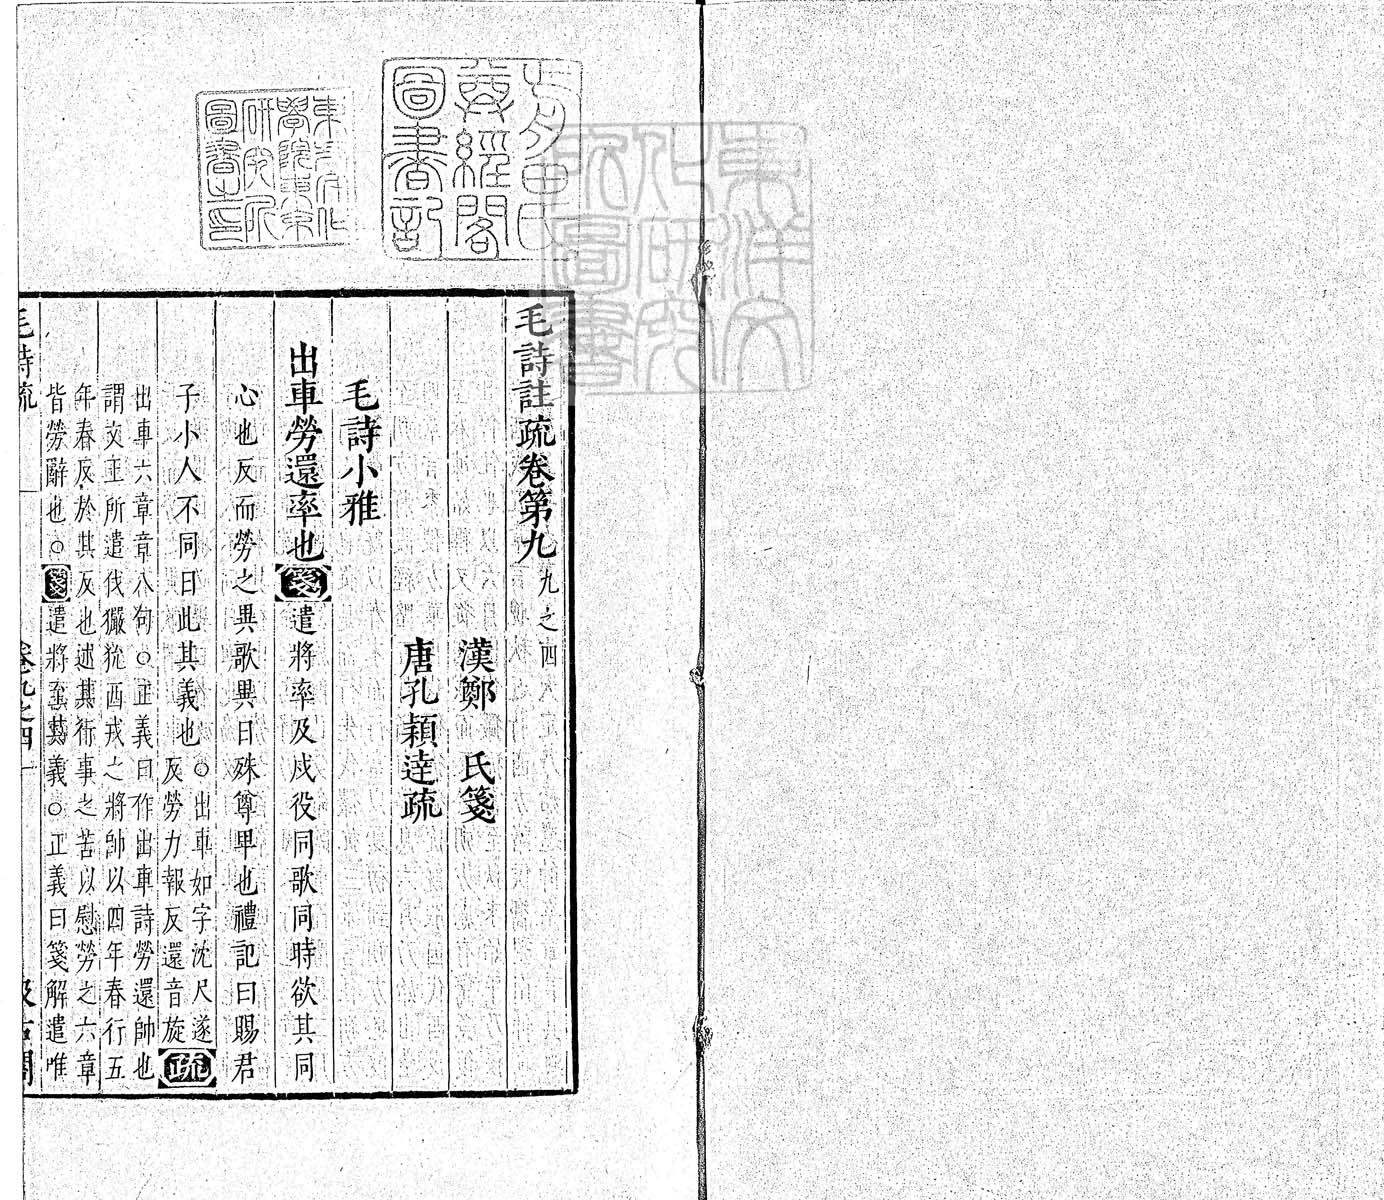 東洋文
化研究
所圖書
尊經閣
圖書記
東方文化
學院東京
研究所
圖書之印
毛詩註疏卷第九 九之四
漢鄭 氏箋
唐孔穎達疏
毛詩小雅
出車勞還率也箋遣將率及戍役同歌同時欲其同
心也反而勞之異歌異日殊尊卑也禮記曰賜君
子小人不同日此其義也○出車如字沈尺遂
反勞力報反還音旋疏
出車六章章八句○正義曰作出車詩勞還帥也
謂文王所遣伐玁狁西戎之將帥以四年春行五
年春反於其反也述其行事之苦以慰勞之六章
皆勞辭也○箋遣將至其義○正義曰箋解遣唯
毛詩疏 卷九之四 一 汲古閣